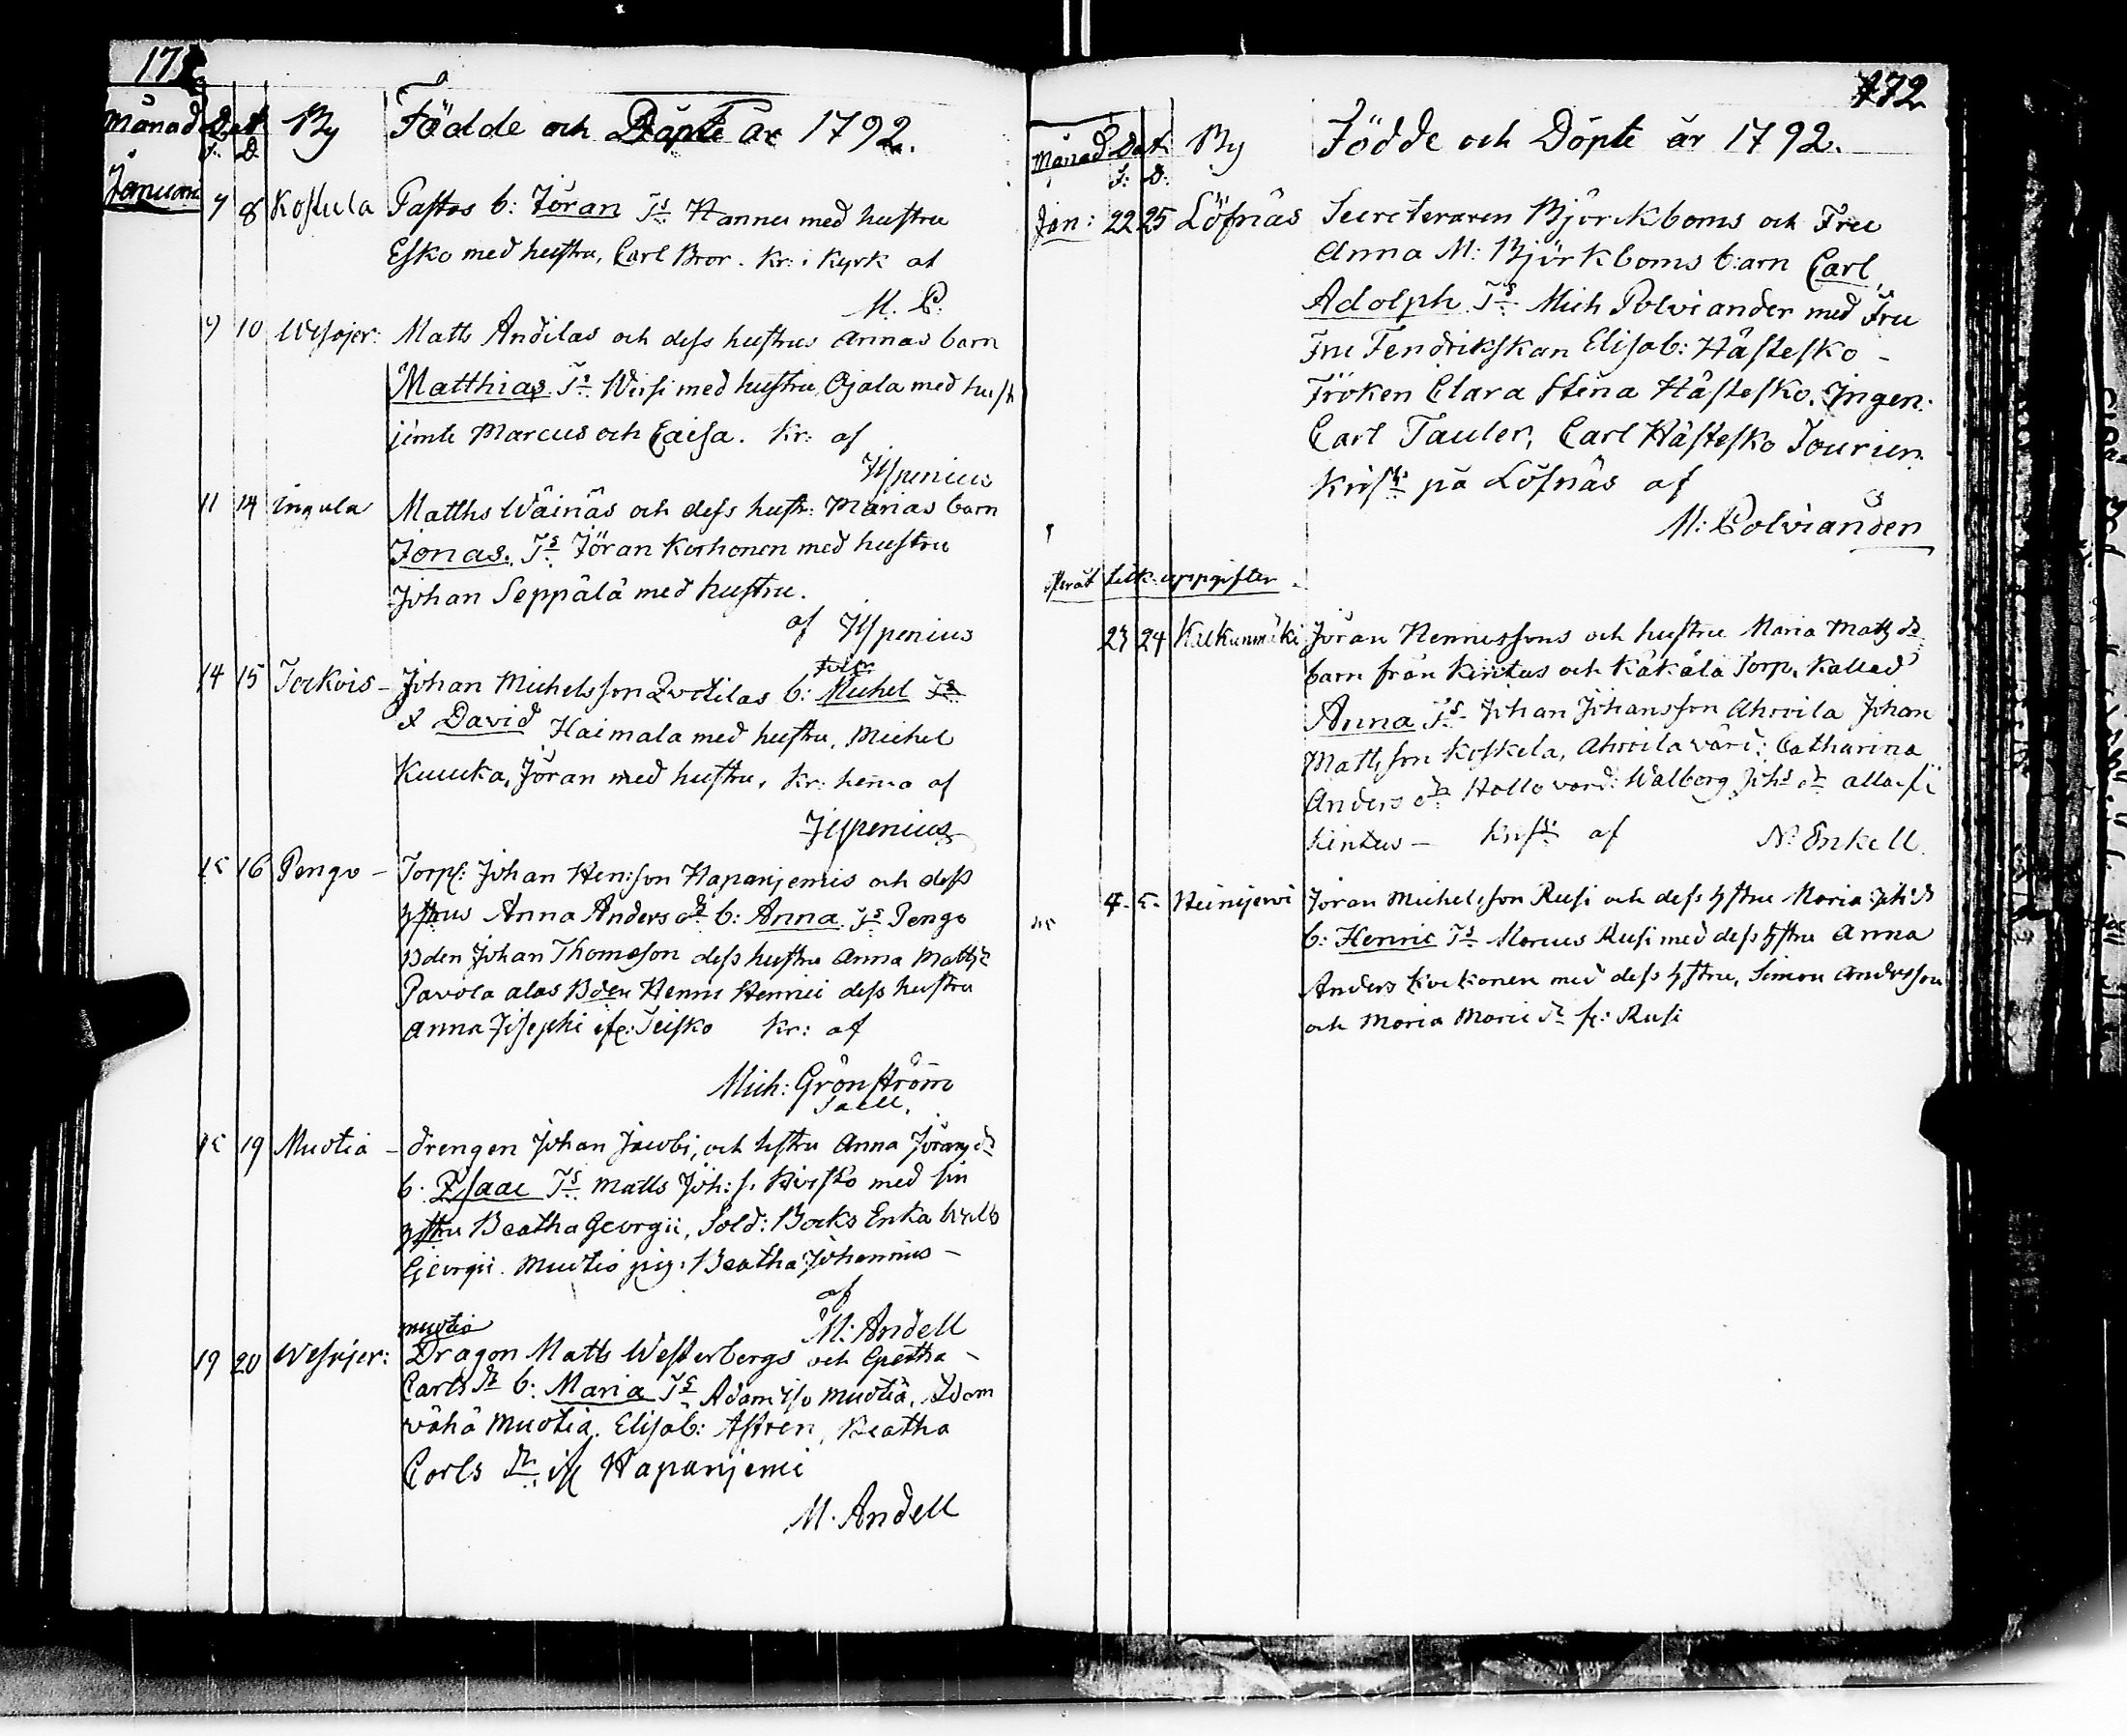 Månad Dat By Födde och Döpte år 1792.
F. D.
Januari 7 8 Koskula Pastos b: Jöran Ts Hannu med hustru
Esko med hustru, Carl Bror. Kr: i Kyrk af
M. P.
9 10 Wesajer: Matts Andilas och dess hustrus Annas barn
Matthias Ts Wiisi med hustru, Ojala med hust
jemte Marcus och Caisa. Kr: af
Ylspenius
11 14 Ingala Matths Wäinäs och dess hustr: Marias barn
Jonas. Ts Jöran Korhonen med hustru
Johan Seppälä med hustru.
af Ylspenius
14 15 Jockois - Johan Michelsson b: Michel Ts
& David Haimala med hustru, Michel
Kuuka, Jöran med hustru, Kr: hema af
Ylspenius
15 16 Pengo - Torp: Johan Hen:son Hapanjemis och dess
hstrus Anna Anders dr b: Anna Ts Pengo
Bden Johan Thomsson dess hustru Anna Matts d
Pavola alas Bden Henric Henrici dess hustru
Anna Josephi Teisko Kr: af
Mich: Grönström
Sacell.
15 19 Muotia - drengen Johan Jacobi, och hstru Anna Jörans dr
b. Isaac Ts Matts Joh: s. Hirsko med sin
hstru Beatha Georgii, Sold: Bocks Enka
Georgii. Muotio pig: Beatha Johannius -
af
muotio M: Andell
19 20 Wesajer: Dragon Matts Westerbergs och Gretha -
Carls dr b: Maria Ts Adam Iso Muotia, Adam
vähä Muotia. Elisab: Astren, Beatha
Carls dr Hapanjemi
M. Andell
172
Månad Dat. By Födde och Döpte år 1792.
F: D:
Jan: 22 25 Löfnäs Secreteraren Björckboms och Fru
Anna M: Björkboms b:arn Carl
Adolph Ts Mich Polviander med Fru
Fru Fendrikskan Elisab: Hästesko -
Fröken Clara Stena Hästesko, Ingen:
Carl Tauler, Carl Hästesko
Krist: på Löfnäs af
M: Polviander
uppgifter
23 24 Kalkunmäki Jöran Hennussons och hustru Maria Matts dr
barn från Kintus och Käkälä Torp. Kallad
Anna Ts Johan Johansson Ahovila Johan
Mattsson Koskela, Ahovila värd: Catharina
Anders dr Hollo vard: Walborg Johs dr alla fr
Kintus - Krist: af N: Enkell
4. 5. Heinijerwi Jöran Michelsson Rusi och dess hstru Maria Joh: d
b: Henric Ts Marcus Rusi med dess hstru Anna
Anders Kockonen med dess hstru, Simon Andersson
och Maria Marci dr fr: Rusi